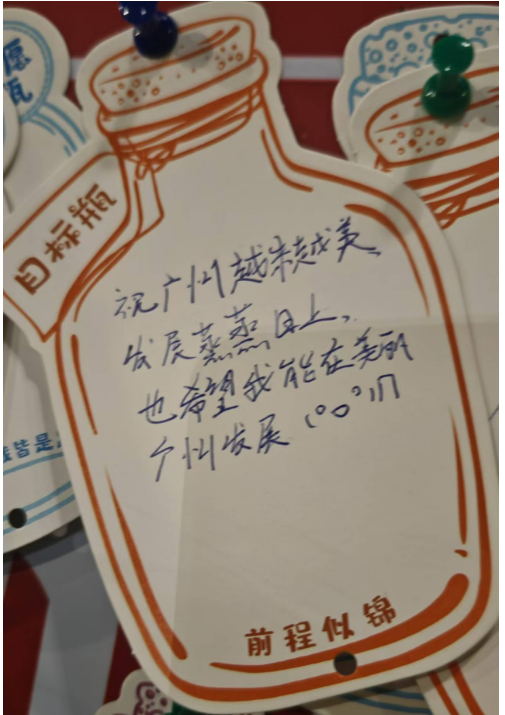 愿
瓶
目标瓶
祝广州越来越美
发展蒸蒸日上,
也希望我能在美丽
广州发展
皆是
前程似锦